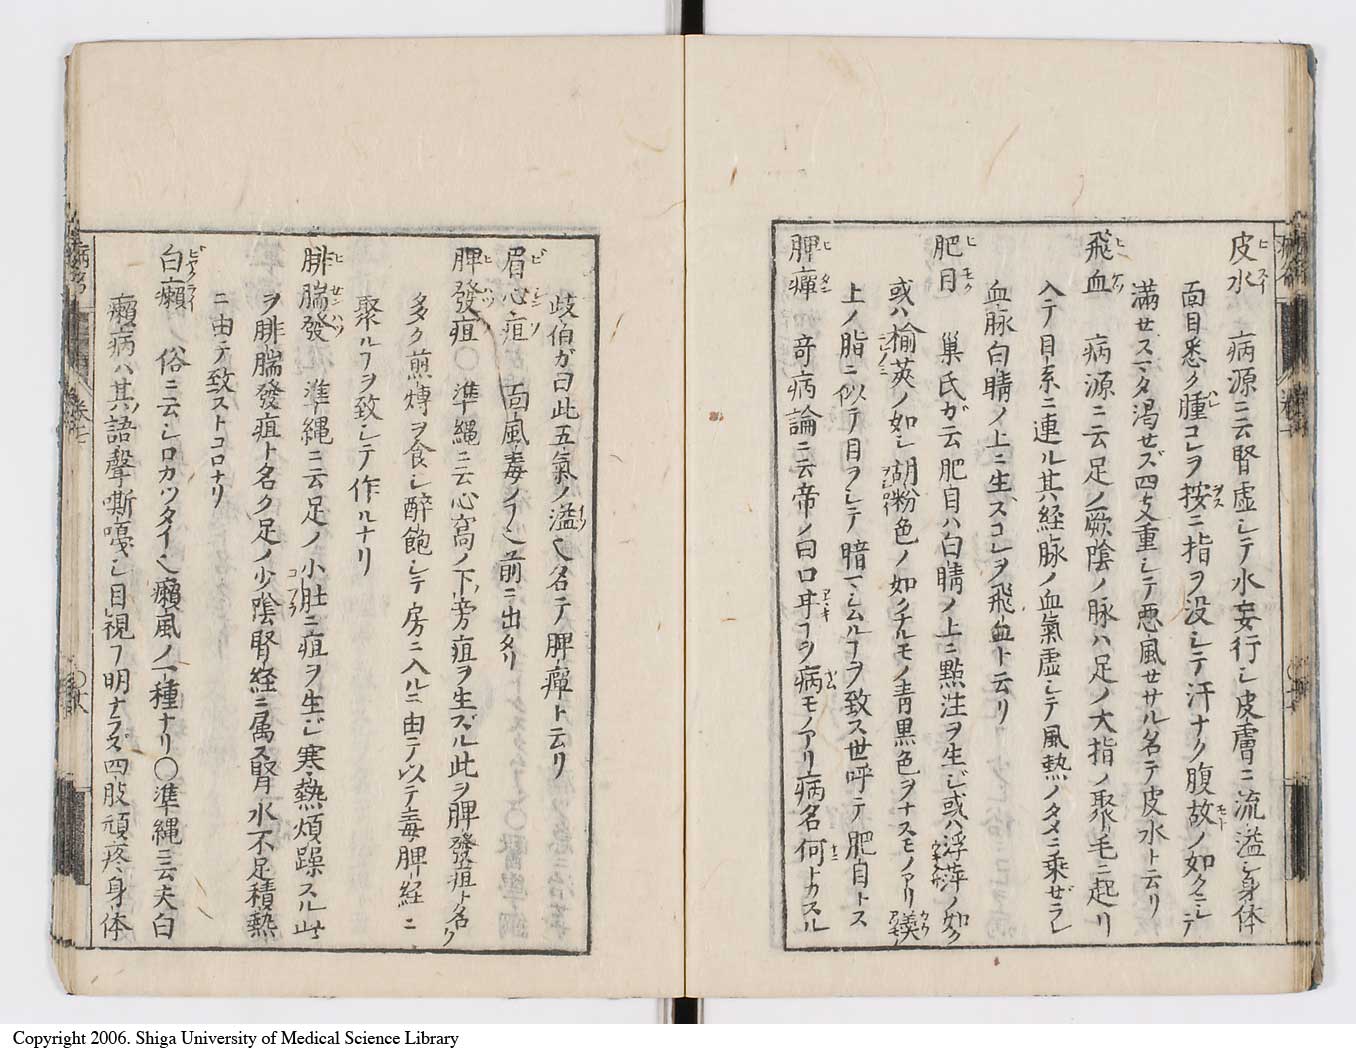 皮水 病源ニ云腎虚シテ水妄行シ皮膚ニ流溢シ身体
面目悉ク腫コレヲ按ニ指ヲ没シテ汗ナク腹故ノ如クニシテ
満セスマタ渇セズ四支重シテ悪風セサル名テ皮水ト云リ
飛血 病源ニ云足ノ厥陰ノ脉ハ足ノ大指ノ聚毛ニ起リ
入テ目系ニ連ル其経脉ノ血氣虚シテ風熱ノタメニ乘ゼラレ
血脉白睛ノ上ニ生スコレヲ飛血ト云リ
肥目 巣氏ガ云肥目ハ白睛ノ上ニ點注ヲ生ジ或ハ浮萍ノ如ク
或ハ榆莢ノ如シ胡粉色ノ如クナルモノ青黒色ヲナスモノアリ羹
上ノ脂ニ似テ目ヲシテ暗マシムルヿヲ致ス世呼テ肥目トス
脾癉 奇病論ニ云帝ノ曰口甘フヲ病モノアリ病名何トカスル
岐伯ガ曰此五氣ノ溢也名テ脾癉ト云リ
眉心疽 面風毒ノヿ也前ニ出タリ
脾發疽〇準縄ニ云心窩ノ下旁疽ヲ生ズル此ヲ脾發疽ト名ク
多ク煎煿ヲ食シ醉飽シテ房ニ入ルニ由テ以テ毒脾経ニ
聚ルヿヲ致シテ作ルナリ
腓腨發 準縄ニ云足ノ小肚ニ疽ヲ生ジ寒熱煩躁スル此
ヲ腓腨發疽ト名ク足ノ少陰腎経ニ属ス腎水不足積熱
ニ由テ致ストコロナリ
白癩 俗ニ云シロカツタイ也癩風ノ一種ナリ〇準縄ニ云夫白
癩病ハ其語聲嘶嗄シ目視フ明ナラズ四肢頑疼身体
Copyright 2006. Shiga University of Medical Science Library